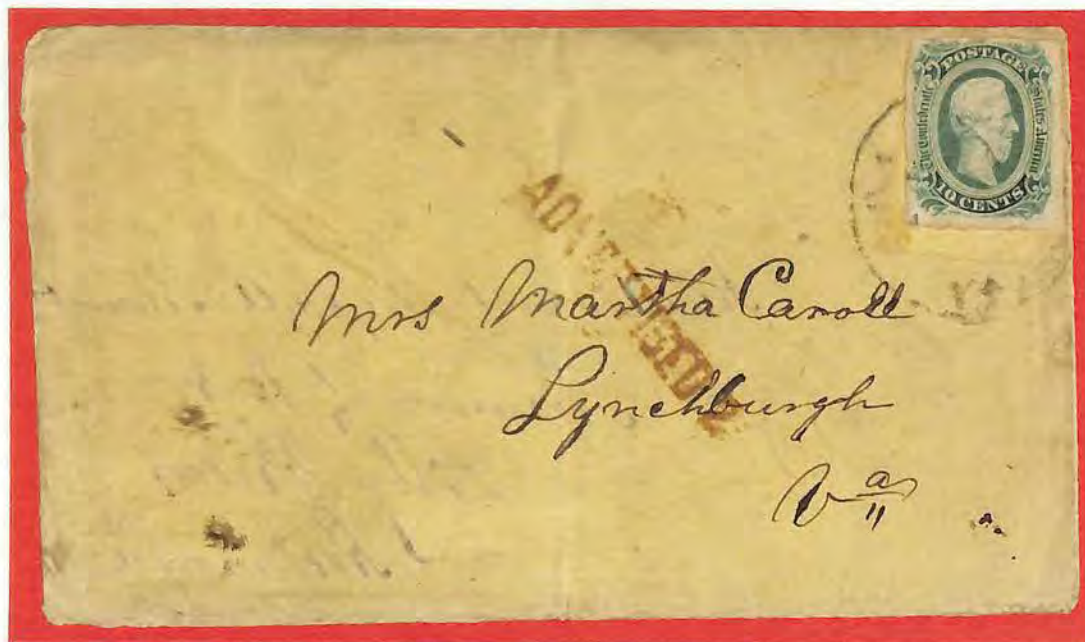 POSTAGE
The Confederate States America
10 CENTS
ADVERTISED
Mrs Martha Caroll
Lynchburgh
Va